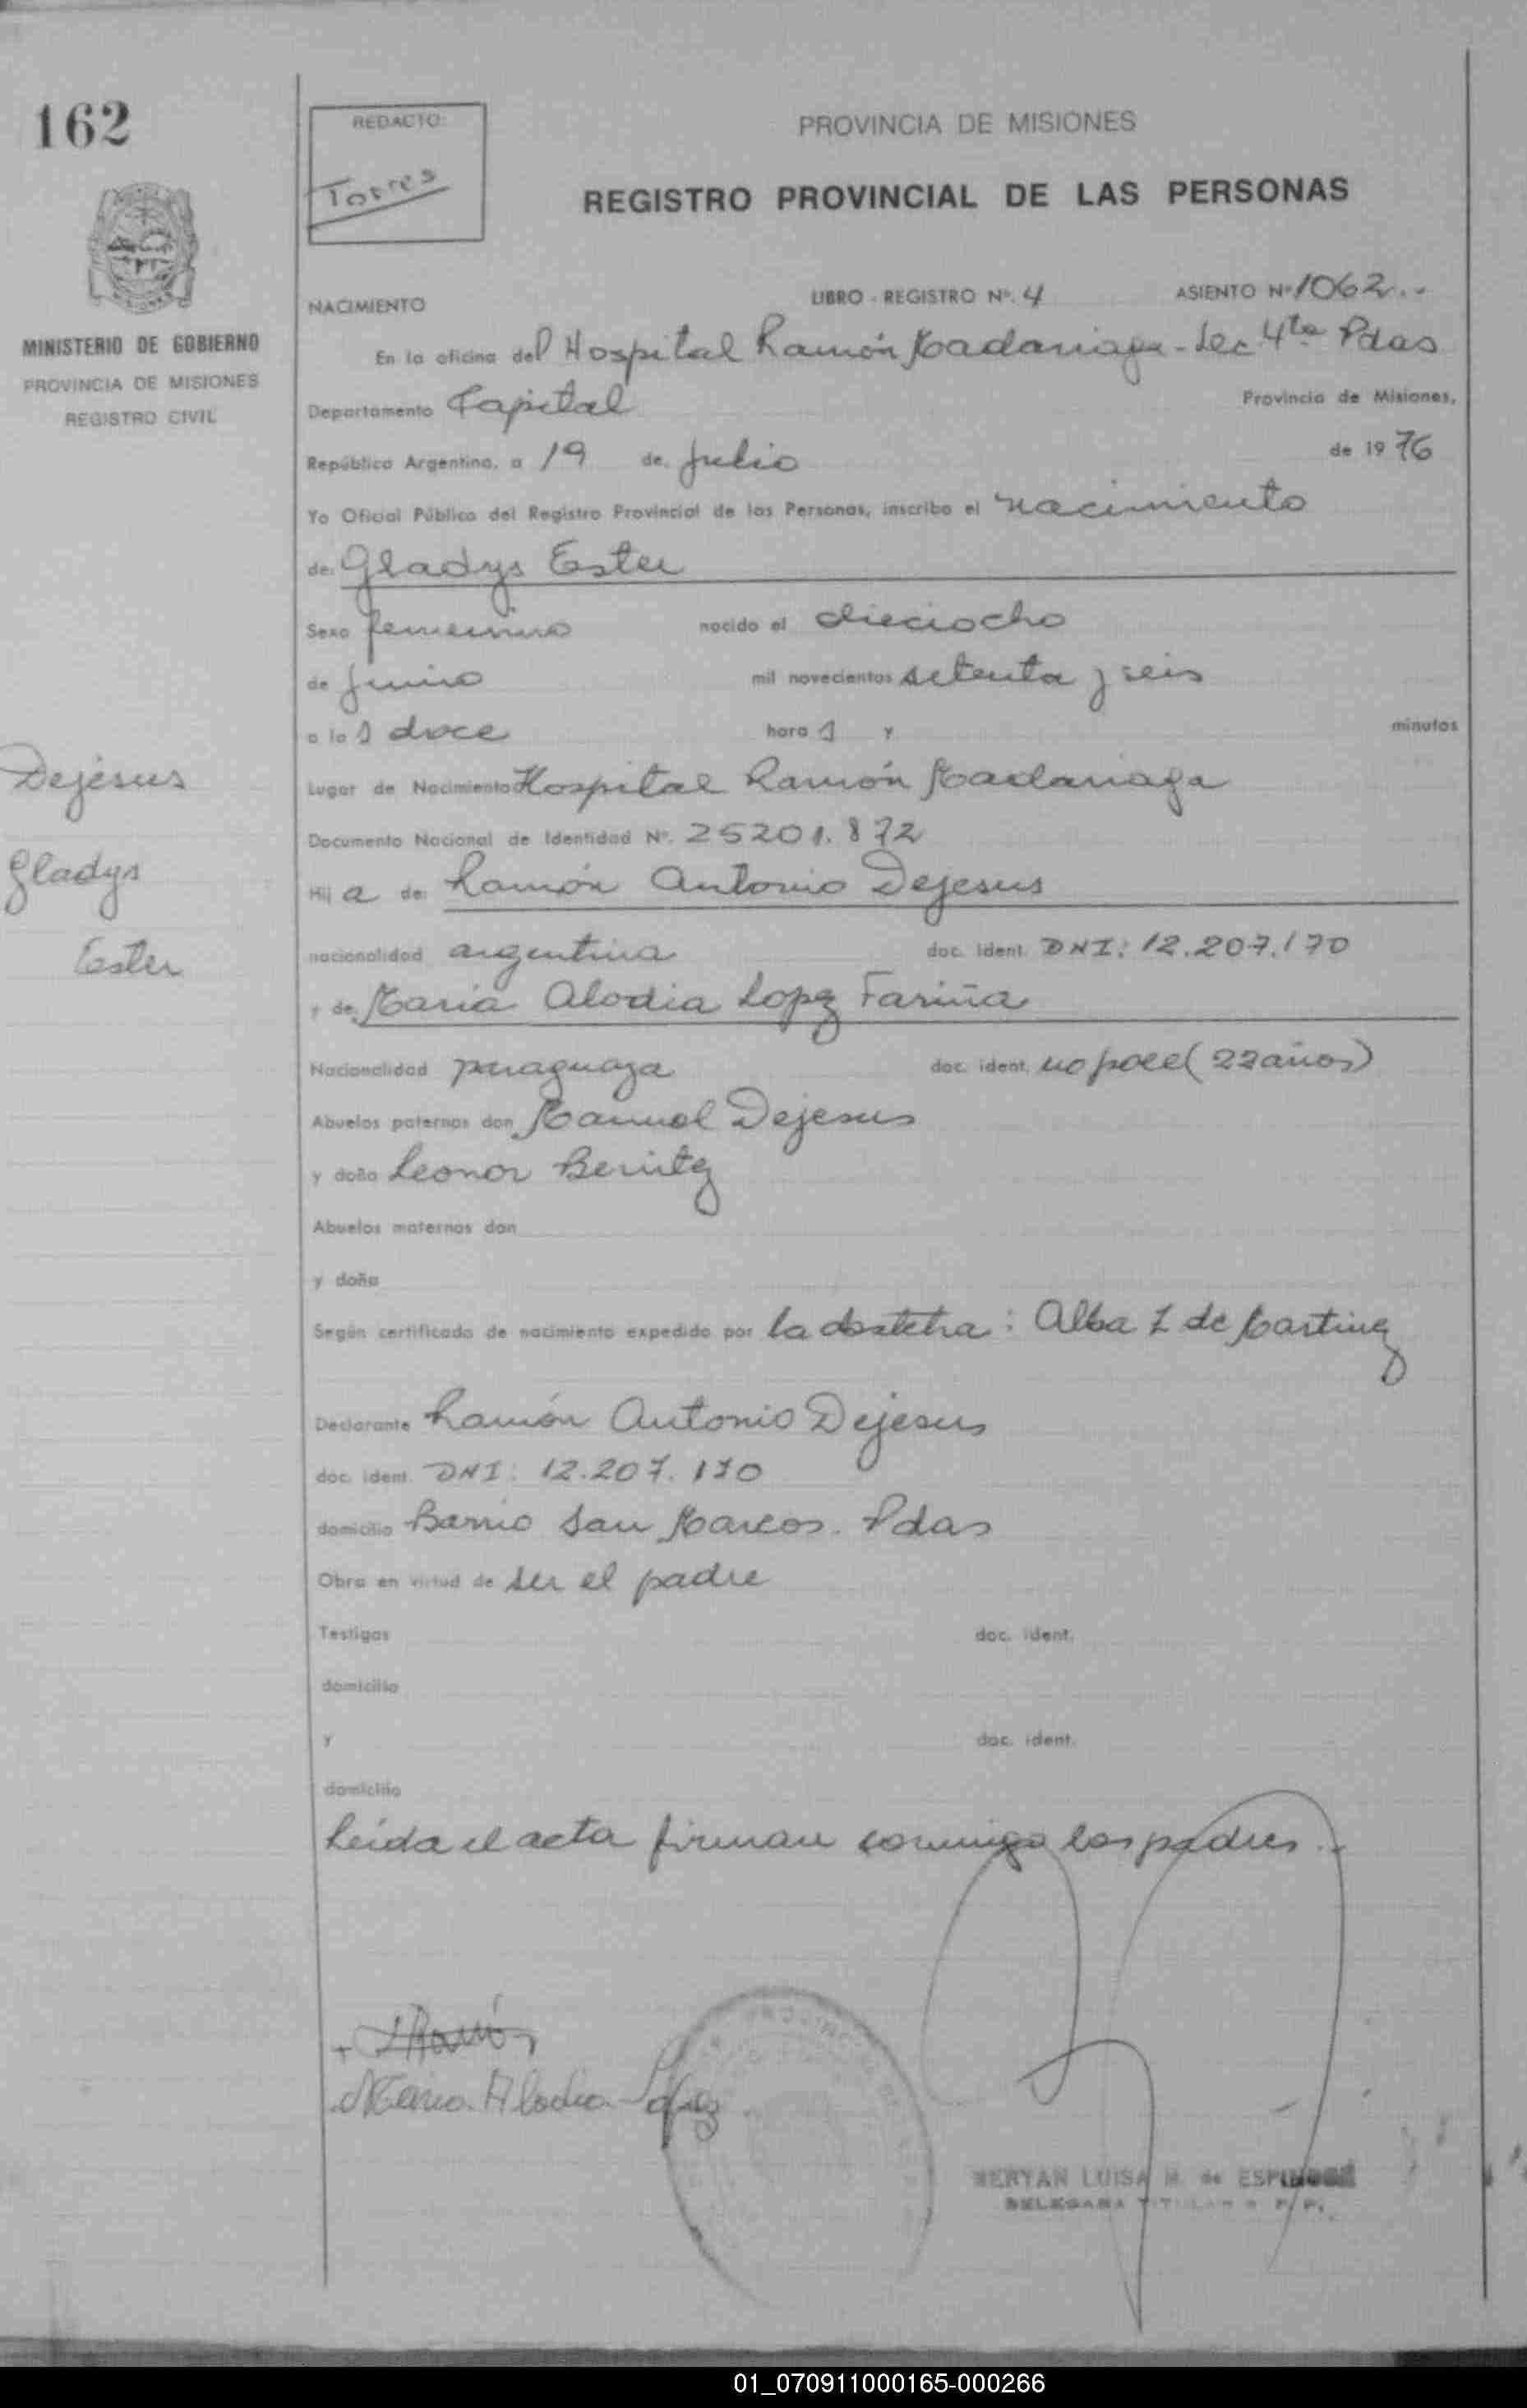 162
REDACTO:
Torres
PROVINCIA DE MISIONES
REGISTRO PROVINCIAL DE LAS PERSONAS
MINISTERIO DE GOBIERNO
PROVINCIA DE MISIONES
REGISTRO CIVIL
NACIMIENTO LIBRO - REGISTRO Nº. 4 ASIENTO Nº 1062..-
En la oficina del Hospital Ramón Madariaga - Sec 4ta Pdas
Departamento Capital Provincia de Misiones,
República Argentina, a 19 de julio de 1976
Yo Oficial Público del Registro Provincial de las Personas, inscribo el nacimiento
de: Gladys Ester
Sexo femenino nacido el dieciocho
de junio mil novecientos setenta y seis
a las doce horas y minutos
Lugar de Nacimiento Hospital Ramón Madariaga
Documento Nacional de Identidad Nº. 25201.872
Hija de: Ramón Antonio Dejesus
nacionalidad argentina doc. ident. DNI: 12.207.170
y de: Maria Alodia Lopez Fariña
Nacionalidad paraguaya doc. ident. no posee (22 años)
Abuelos paternos don Manuel Dejesus
y doña Leonor Benitez
Abuelos maternos don
y doña
Según certificado de nacimiento expedido por la obstetra: Alba Z de Martinez
Declarante Ramón Antonio Dejesus
doc. ident. DNI: 12.207.170
domicilio Barrio San Marcos. Pdas
Obra en virtud de ser el padre
Testigos doc. ident.
domicilio
y doc. ident.
domicilio
Leída el acta firman conmigo los padres.-
Dejesus
Gladys
Ester
Ramón
Maria Alodia Lopez
LUISA M. de
01_070911000165-000266